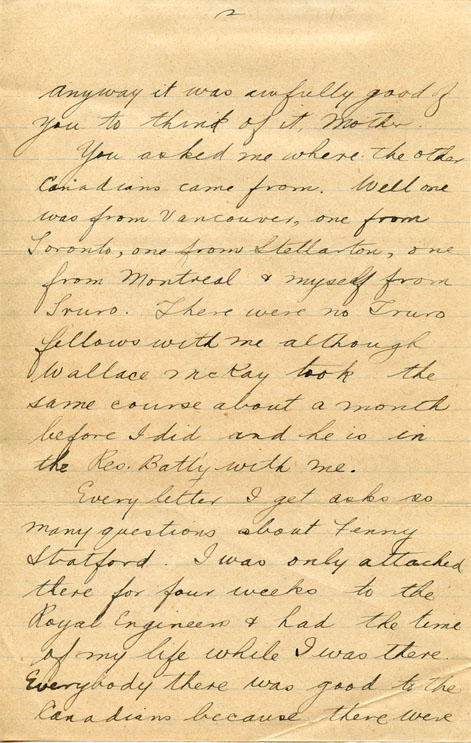 2
Anyway it was awfully good of
you to think of it, Mother.
You asked me where the other
Canadians came from. Well one
was from Vancouver, one from
Toronto, one from Stellarton, one
from Montreal & myself from
Truro. There were no Truro
fellows with me although
Wallace McKay took the
same course about a month
before I did and he is in
the Res. Batt'y with me.
Every letter I get asks so
many questions about Fenny
Stratford. I was only attached
there for four weeks to the
Royal Engineers & had the time
of my life while I was there.
Everybody there was good to the
Canadians because there were